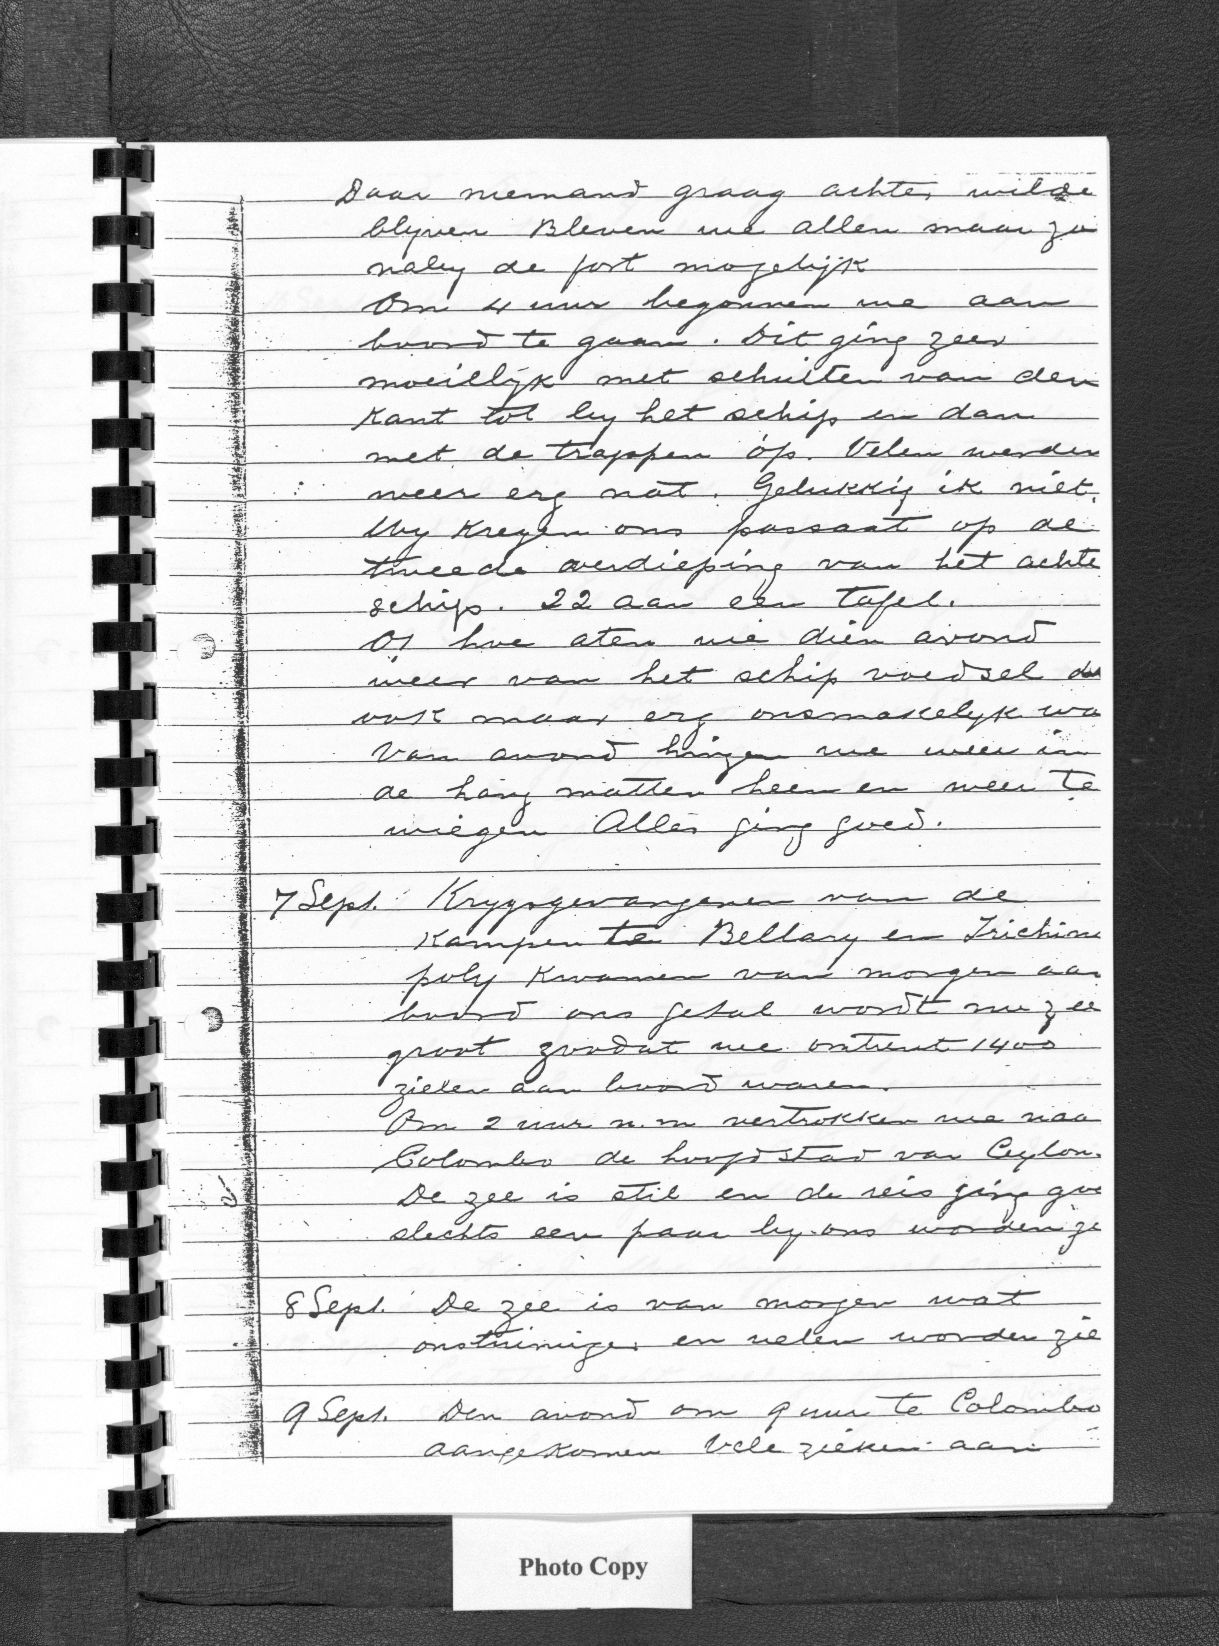 Daar niemand graag achter wilde
blyven Bleven we allen maar zo
naby de port mogelijk
Om 4 uur begonnen we aan
boord te gaan. Dit ging zeer
moeillijk met schuiten van den
kant tot by het schip en dan
met de trappen op. Velen werden
weer erg nat. Gelukkig ik niet.
Wy kregen ons passaat op de
tweede verdieping van het achte
schip. 22 aan een tafel.
hoe aten we dien avond
weer van het schip voedsel
ook maar erg onsmakelyk wa
Van avond hingen we weer in
de hang matten heen en weer te
wiegen Alles ging goed.
7 Sept. Krygsgevangenen van de
kampen te Bellary en Trichino
poly kwamen van morgen aan
boord ons getal wordt nu zee
groot zoodat we ontrent 1400
zielen aan boord waren.
Om 2 uur n.m vertrokken we naa
Colombo de hoofdstad van Ceylon.
De zee is stil en de reis ging goe
slechts een paar by ons worden zi
8 Sept. De zee is van morgen wat
onstuimiger en velen worden zie
9 Sept. Den avond om 9 uur te Colombo
aangekomen Vele zieken aan
Photo Copy